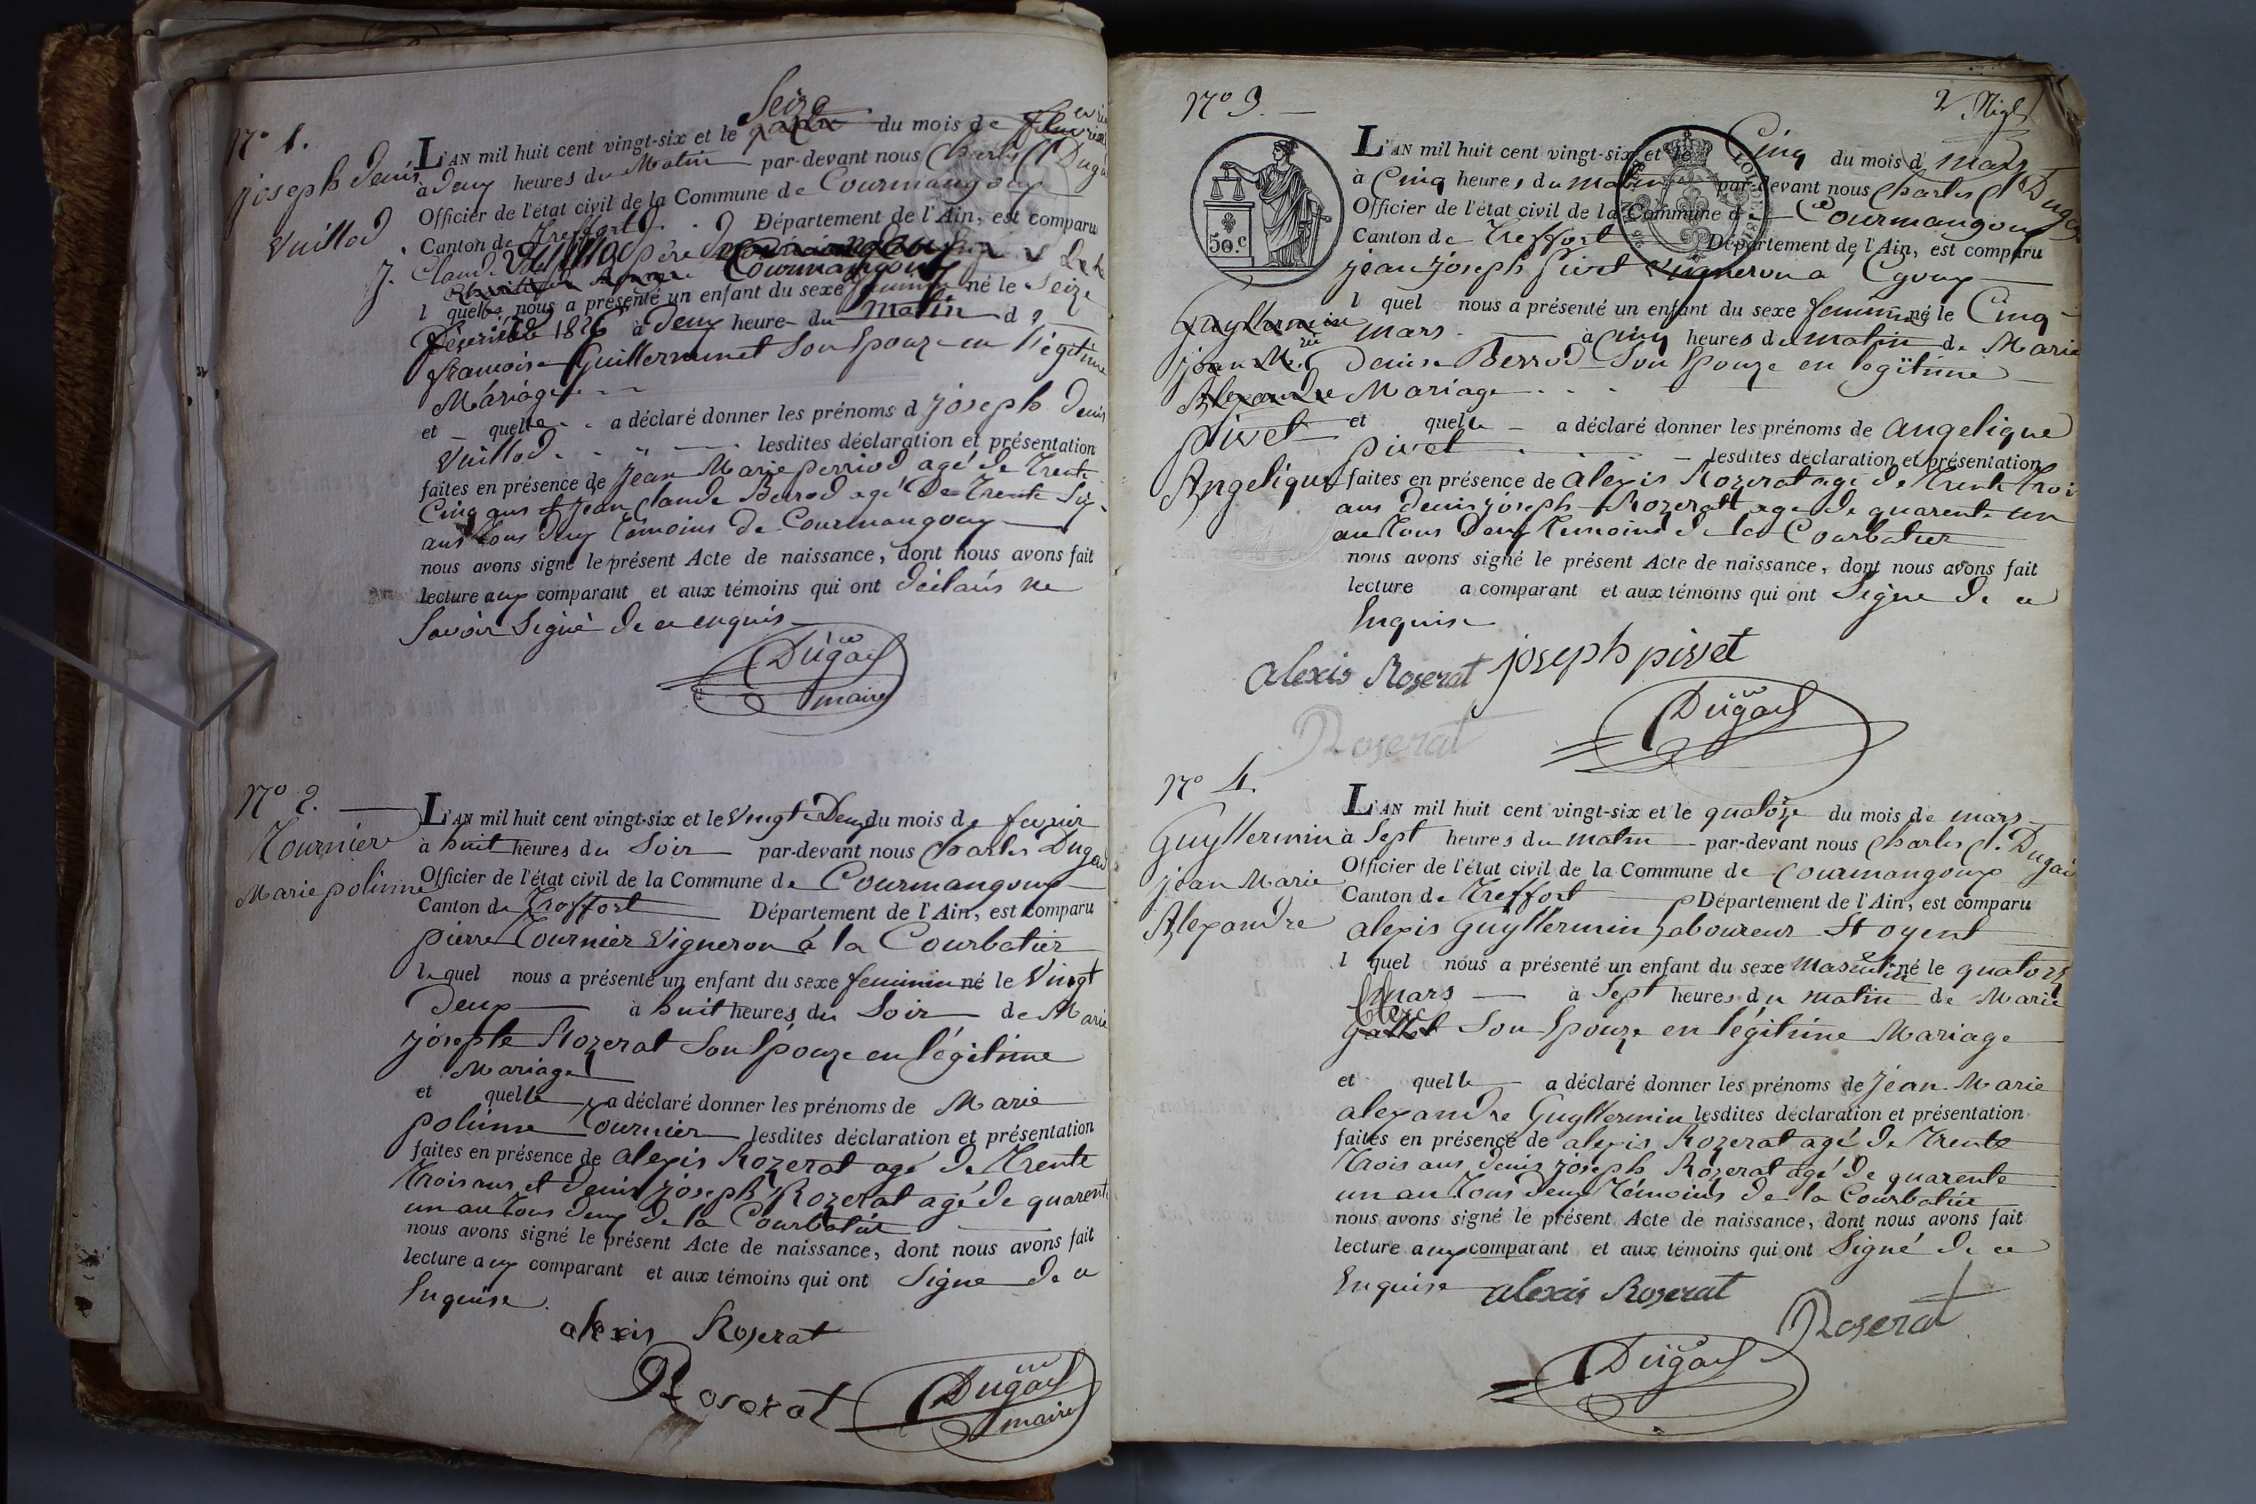 N° 1.
joseph denis
Vuillod
Seize
L'AN mil huit cent vingt-six et le du mois de
à deux heures du Matin par-devant nous Charles Cl Dugas
Officier de l'état civil de la Commune de Courmangoux
Canton de Treffort Département de l'Ain, est comparu
Claude Vuillod père
Courmangoux
l quel nous a présenté un enfant du sexe né le Seize
1826 à Deux heure du Matin d
francoise Guillermmet Son Epouze en légitime
Mariage
et quelle a déclaré donner les prénoms d joseph denis
Vuillod. lesdites déclaration et présentation
faites en présence de Jean Marie perriod agé de Trente
Cinq ans et Jean Claude Berrod agé De Trente Six
ans tous deux témoins de Courmangoux
nous avons signé le présent Acte de naissance, dont nous avons fait
lecture aux comparant et aux témoins qui ont déclarés ne
Savoir Signé de ce enquis
Dugas
maire
N° 2.
Tournier
Marie polinne
L'AN mil huit cent vingt-six et le Vingt Deux du mois de fevrier
à huit heures du Soir par-devant nous Charles Dugas
Officier de l'état civil de la Commune de Courmangoux
Canton de Treffort Département de l'Ain, est comparu
pierre Tournier Vigneron à la Courbatier
lequel nous a présenté un enfant du sexe feminin né le Vingt
Deux à huit heures du Soir de Marie
josephte Rozerat Son Epouze en légitime
Mariage
et quelle a déclaré donner les prénoms de Marie
polinne Tournier lesdites déclaration et présentation
faites en présence de alexis Rozerat agé de Trente
Trois ans et denis joseph Rozerat agé de quarente
un an tous deux de la Courbatier
nous avons signé le présent Acte de naissance, dont nous avons fait
lecture aux comparant et aux témoins qui ont Signe de ce
Enquise.
alexis Roserat
Roserat
Dugas
maire
N° 3.
2
50.c
L'AN mil huit cent vingt-six et le Cinq du mois d mars
à Cinq heures du matin par-devant nous Charles Cl Dugas
Officier de l'état civil de la Commune d Courmangoux
Canton de Treffort Département de l'Ain, est comparu
jean joseph pivet Vigneron a Cgoux
l quel nous a présenté un enfant du sexe feminin né le Cinq
mars à Cinq heures du matin de Marie
Denise Berrod Son Epouze en legitime
Mariage
Guyllermin
jean M.rie
Alexandre
pivet
Angelique
et quelle a déclaré donner les prénoms de angelique
pivet lesdites déclaration et présentation
faites en présence de alexis Rozerat agé de Trente Trois
ans denis joseph Rozeratt age de quarente un
an tous deux temoins de la Courbatier
nous avons signé le présent Acte de naissance, dont nous avons fait
lecture a comparant et aux témoins qui ont Signe de ce
Enquise
alexis Roserat joseph pivet
Roserat
Dugas
N° 4.
Guyllermin
jean Marie
Alexandre
L'AN mil huit cent vingt-six et le quatorze du mois de mars
à Sept heures du matin par-devant nous Charles Cl. Dugas
Officier de l'état civil de la Commune de Courmangoux
Canton de Treffort Département de l'Ain, est comparu
alexis Guyllermin Laboureur St oyent
l quel nous a présenté un enfant du sexe Masculin né le quatorze
mars à Sept heures du matin de Marie
Clerc
gallet Son Epouze en légitime Mariage
et quelle a déclaré donner les prénoms de Jean Marie
alexandre Guyllermin lesdites déclaration et présentation
faites en présence de alexis Rozerat agé de Trente
Trois ans denis joseph Rozerat agé de quarente
un an tous deux Témoins de la Courbatier
nous avons signé le présent Acte de naissance, dont nous avons fait
lecture aux comparant et aux témoins qui ont Signé de ce
Enquise alexis Roserat
Roserat
Dugas